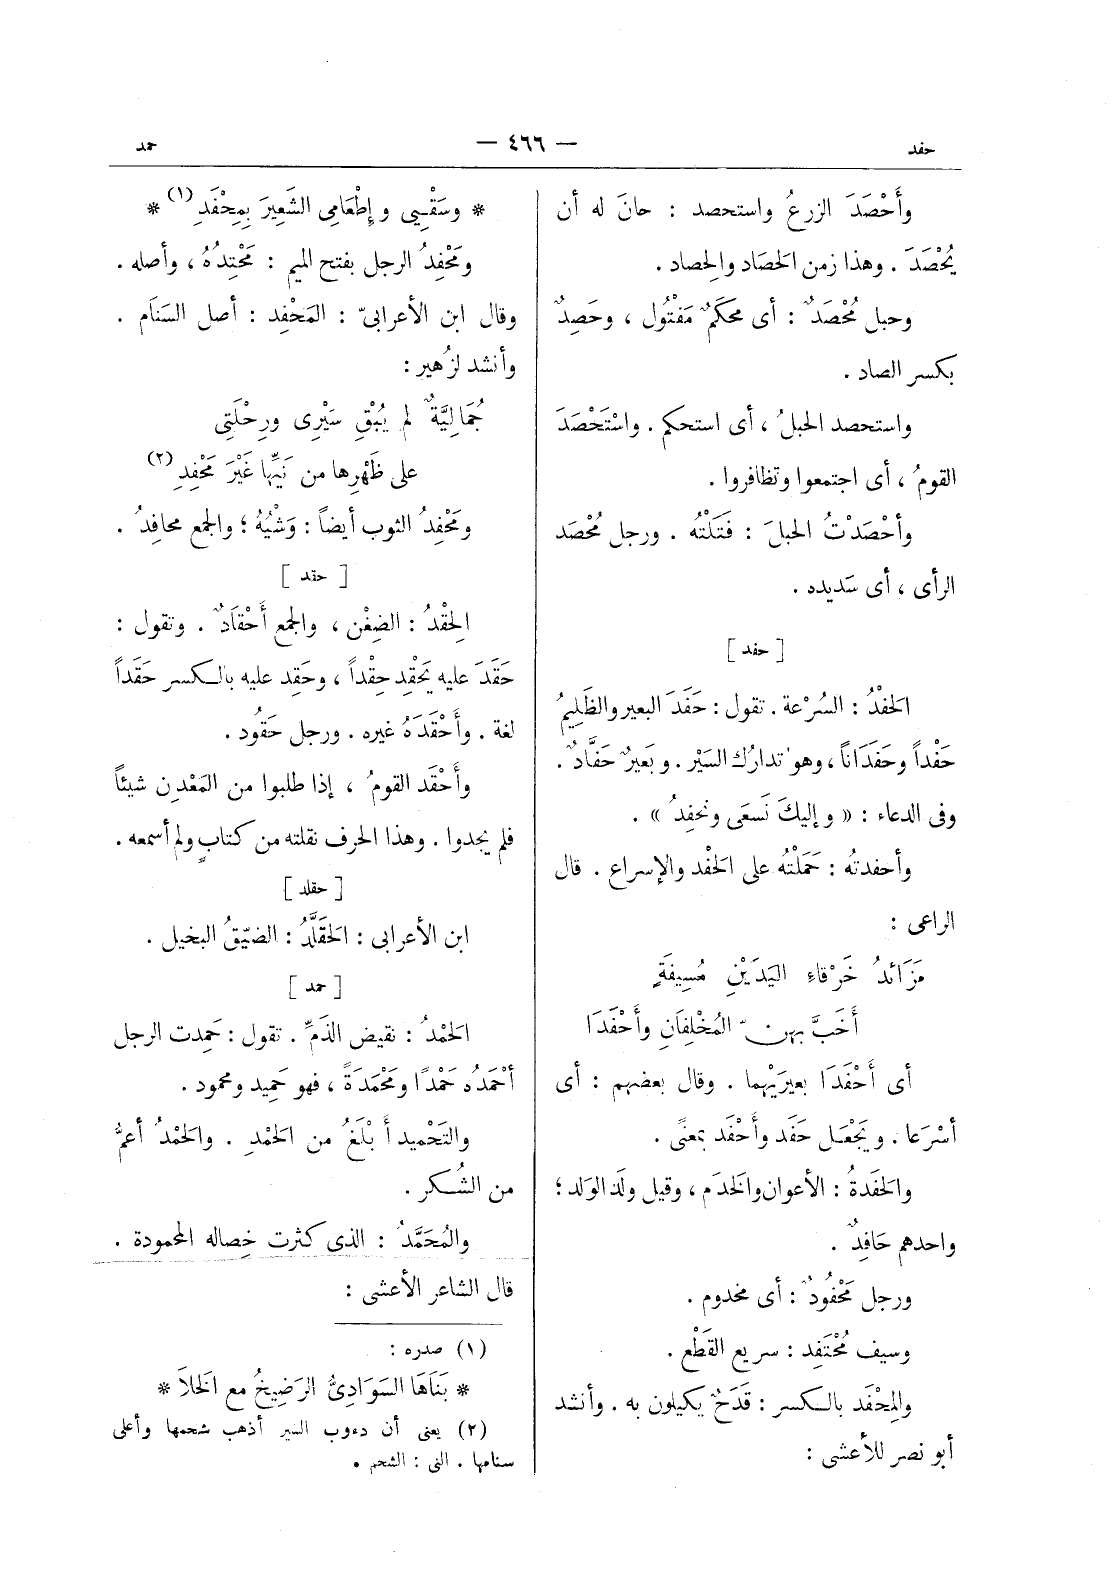 حفد
— ٤٦٦ —
حمد
وأَحْصَدَ الزرعُ واستحصد : حانَ له أن
يُحْصَدَ . وهذا زمن الحَصَاد والحِصاد .
وحبل مُحْصَدٌ : أى محكَمٌ مَفْتُول ، وحَصِدٌ
بكسر الصاد .
واستحصد الحبلُ ، أى استحكم . واسْتَحْصَدَ
القومُ ، أى اجتمعوا وتظافروا .
وأحْصَدْتُ الحبلَ : فَتَلْتُه . ورجل مُحْصَد
الرأى ، أى سَديده .
[ حفد ]
الحَفْدُ : السُرْعة . تقول : حَفَدَ البعير والظَليمُ
حَفْداً وحَفَدَاناً ، وهو تدارُك السَيْر . وبَعيرٌ حَفَّادٌ .
وفى الدعاء : « وإليكَ نَسعَى ونحفِدُ » .
وأحفدتُه : حَمَلْتُه على الحَفْد والإسراع . قال
الراعى :
مَزَائدُ خَرْقاءِ اليَدَيْنِ مُسِيفَةٍ
أَخَبَّ بِهِنّ المُخْلِفَانِ وأَحْفَدَا
أى أَحْفَدَا بعيرَيْهما . وقال بعضهم : أى
أسْرَعا . ويَجْعَل حَفَد وأَحْفَد بمعنًى .
والحَفَدةُ : الأعوان والخدَم ، وقيل ولَد الوَلد ؛
واحدهم حَافِدٌ .
ورجل مَحْفُودٌ : أى مخدوم .
وسيف مُحْتَفِد : سريع القَطْع .
والمِحْفَد بالكسر : قَدَحٌ يكيلون به . وأنشد
أبو نصر للأعشى :
* وسَقْيِى وإِطْعَامِى الشَعِيرَ بِمِحْفَدِ (١) *
ومَحْفِدُ الرجل بفتح الميم : مَحْتِدُهُ ، وأصله .
وقال ابن الأعرابىّ : المَحْفِد : أصل السَنَام .
وأنشد لزُهير :
جُمَالِيَّةٌ لم يُبْقِ سَيْرِى ورِحْلَتِى
على ظَهْرِها من نَيِّها غَيْرَ مَحْفِدِ (٢)
ومَحْفِدُ الثوب أيضاً : وَشْيُهُ ؛ والجمع محافِدُ .
[ حقد ]
الحِقْدُ : الضِغْن ، والجمع أَحْقَادٌ . وتقول :
حَقَدَ عليه يَحْقِد حِقْداً ، وحَقِد عليه بالكسر حَقَداً
لغة . وأَحْقَدَهُ غيره . ورجل حَقُود .
وأَحْقَد القومُ ، إذا طلبوا من المَعْدِن شيئاً
فلم يجدوا . وهذا الحرف نقلته من كتابٍ ولم أسمعه .
[ حقلد ]
ابن الأعرابى : الحَقَلَّدُ : الضيّقُ البخيل .
[ حمد ]
الحَمْدُ : نقيض الذَمِّ . تقول : حَمِدت الرجل
أحْمَدُه حَمْدًا ومَحْمَدَةً ، فهو حَمِيد ومحمود .
والتَحْميد أَبْلَغُ من الحَمْدِ . والحَمْدُ أعمُّ
من الشُكر .
والمُحَمَّدُ : الذى كثرت خِصاله المحمودة .
قال الشاعر الأعشى :
(١) صدره :
* بَنَاهَا السَوَادِىُّ الرَضِيخُ مع الخَلاَ *
(٢) يعنى أن دءوب السير أذهب شحمها وأعلى
سنامها . النى : الشحم .